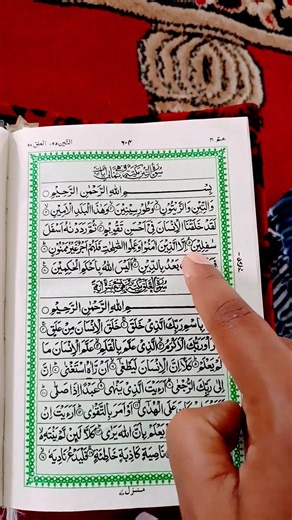 التين ٩٥، العلق ٩٦
٦٠٣
عم ٣٠
بِسْمِ اللهِ الرَّحْمٰنِ الرَّحِيْمِ
وَالتِّيْنِ وَالزَّيْتُوْنِ وَطُوْرِ سِيْنِيْنَ وَهٰذَا الْبَلَدِ الْاَمِيْنِ
لَقَدْ خَلَقْنَا الْاِنْسَانَ فِيْ اَحْسَنِ تَقْوِيْمٍ ثُمَّ رَدَدْنٰهُ اَسْفَلَ
سٰفِلِيْنَ اِلَّا الَّذِيْنَ اٰمَنُوْا وَعَمِلُوا الصّٰلِحٰتِ فَلَهُمْ اَجْرٌ غَيْرُ مَمْنُوْنٍ
بَعْدُ بِالدِّيْنِ اَلَيْسَ اللهُ بِاَحْكَمِ الْحٰكِمِيْنَ
بِسْمِ اللهِ الرَّحْمٰنِ الرَّحِيْمِ
بِاسْمِ رَبِّكَ الَّذِيْ خَلَقَ خَلَقَ الْاِنْسَانَ مِنْ عَلَقٍ
وَرَبُّكَ الْاَكْرَمُ الَّذِيْ عَلَّمَ بِالْقَلَمِ عَلَّمَ الْاِنْسَانَ مَا
لَمْ يَعْلَمْ كَلَّا اِنَّ الْاِنْسَانَ لَيَطْغٰى اَنْ رَّاٰهُ اسْتَغْنٰى اِنَّ
اِلٰى رَبِّكَ الرُّجْعٰى اَرَءَيْتَ الَّذِيْ يَنْهٰى عَبْدًا اِذَا صَلّٰى
كَانَ عَلَى الْهُدٰى اَوْ اَمَرَ بِالتَّقْوٰى اَرَءَيْتَ اِنْ
يَعْلَمْ بِاَنَّ اللهَ يَرٰى كَلَّا لَئِنْ لَّمْ يَنْتَهِ
نَاصِيَةٍ كَاذِبَةٍ خَاطِئَةٍ فَلْيَدْعُ نَادِيَهٗ
منزل ٧